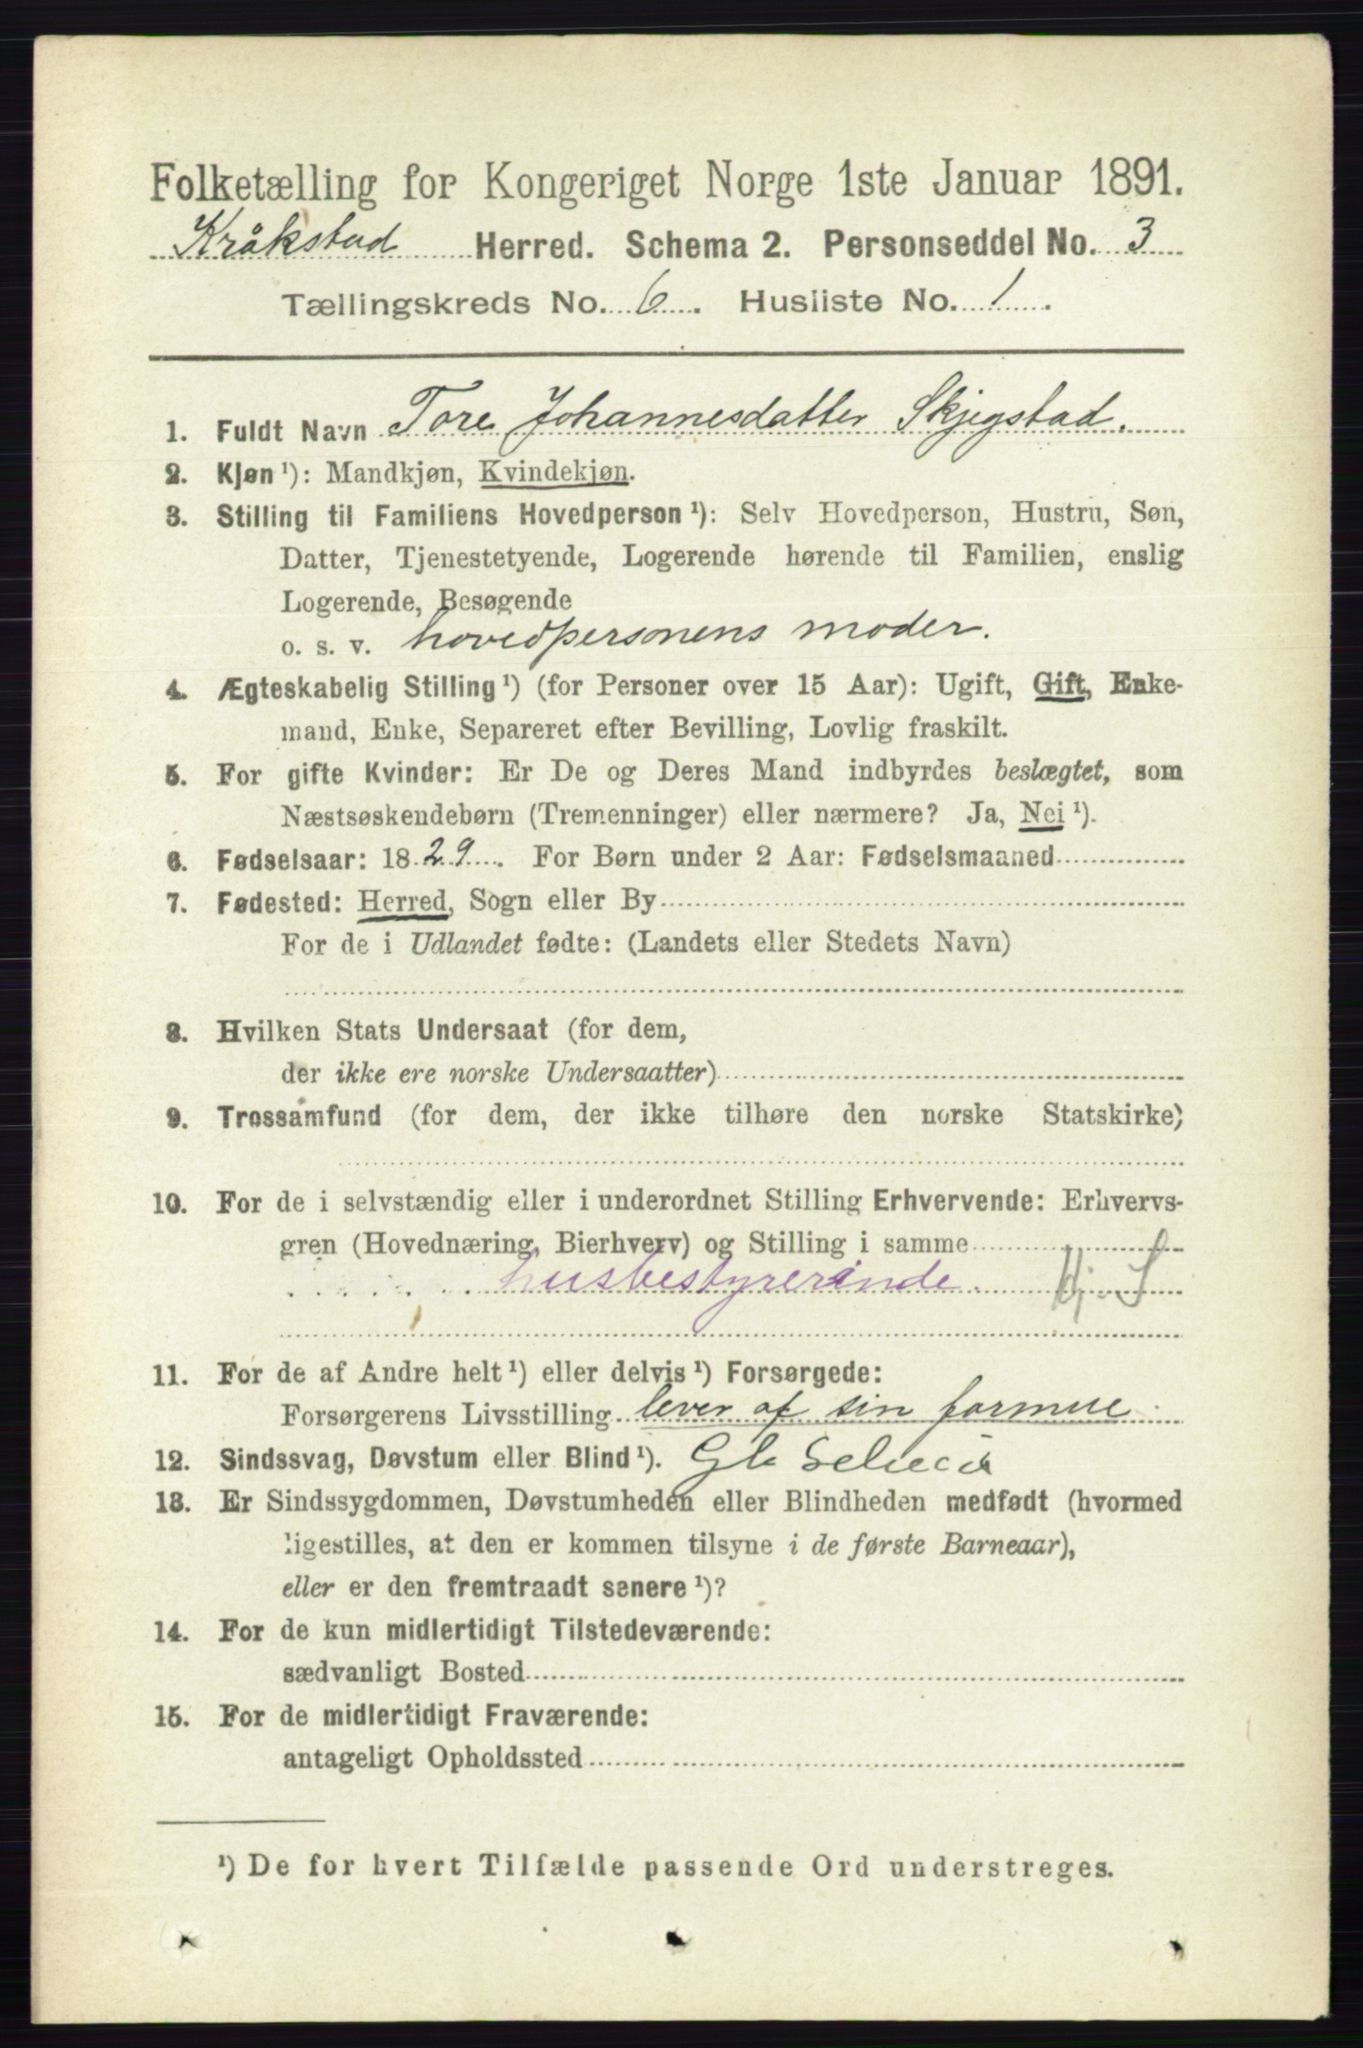 Folketælling for Kongeriget Norge 1ste Januar 1891.
Kråkstad Herred. Schema 2. Personseddel No. 3
Tællingskreds No. 6. Husliste No. 1.
1. Fuldt Navn Tore Johannesdatter Skjegstad.
2. Kjøn ¹): Mandkjøn, Kvindekjøn.
3. Stilling til Familiens Hovedperson ¹): Selv Hovedperson, Hustru, Søn,
Datter, Tjenestetyende, Logerende hørende til Familien, enslig
Logerende, Besøgende
o. s. v. hovedpersonens moder.
4. Ægteskabelig Stilling ¹) (for Personer over 15 Aar): Ugift, Gift, Enke-
mand, Enke, Separeret efter Bevilling, Lovlig fraskilt.
5. For gifte Kvinder: Er De og Deres Mand indbyrdes beslægtet, som
Næstsøskendebørn (Tremenninger) eller nærmere? Ja, Nei ¹).
6. Fødselsaar: 1829. For Børn under 2 Aar: Fødselsmaaned
7. Fødested: Herred, Sogn eller By
For de i Udlandet fødte: (Landets eller Stedets Navn)
8. Hvilken Stats Undersaat (for dem,
der ikke ere norske Undersaatter)
9. Trossamfund (for dem, der ikke tilhøre den norske Statskirke)
10. For de i selvstændig eller i underordnet Stilling Erhvervende: Erhvervs-
gren (Hovednæring, Bierhverv) og Stilling i samme
husbestyrerinde
11. For de af Andre helt ¹) eller delvis ¹) Forsørgede:
Forsørgerens Livsstilling lever af sin formue
12. Sindssvag, Døvstum eller Blind ¹).
13. Er Sindssygdommen, Døvstumheden eller Blindheden medfødt (hvormed
ligestilles, at den er kommen tilsyne i de første Barneaar),
eller er den fremtraadt senere ¹)?
14. For de kun midlertidigt Tilstedeværende:
sædvanligt Bosted
15. For de midlertidigt Fraværende:
antageligt Opholdssted
¹) De for hvert Tilfælde passende Ord understreges.